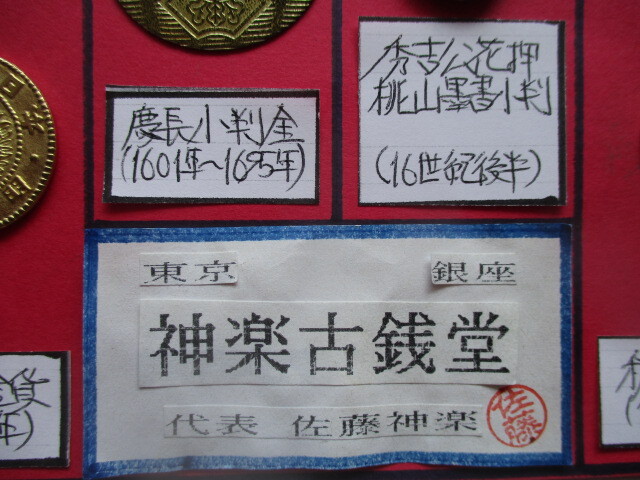 慶長小判金
(1601年～1695年)
秀吉公花押
桃山墨書小判
(16世紀後半)
東京
銀座
神楽古銭堂
代表 佐藤神楽
佐藤
貨
年)
日本